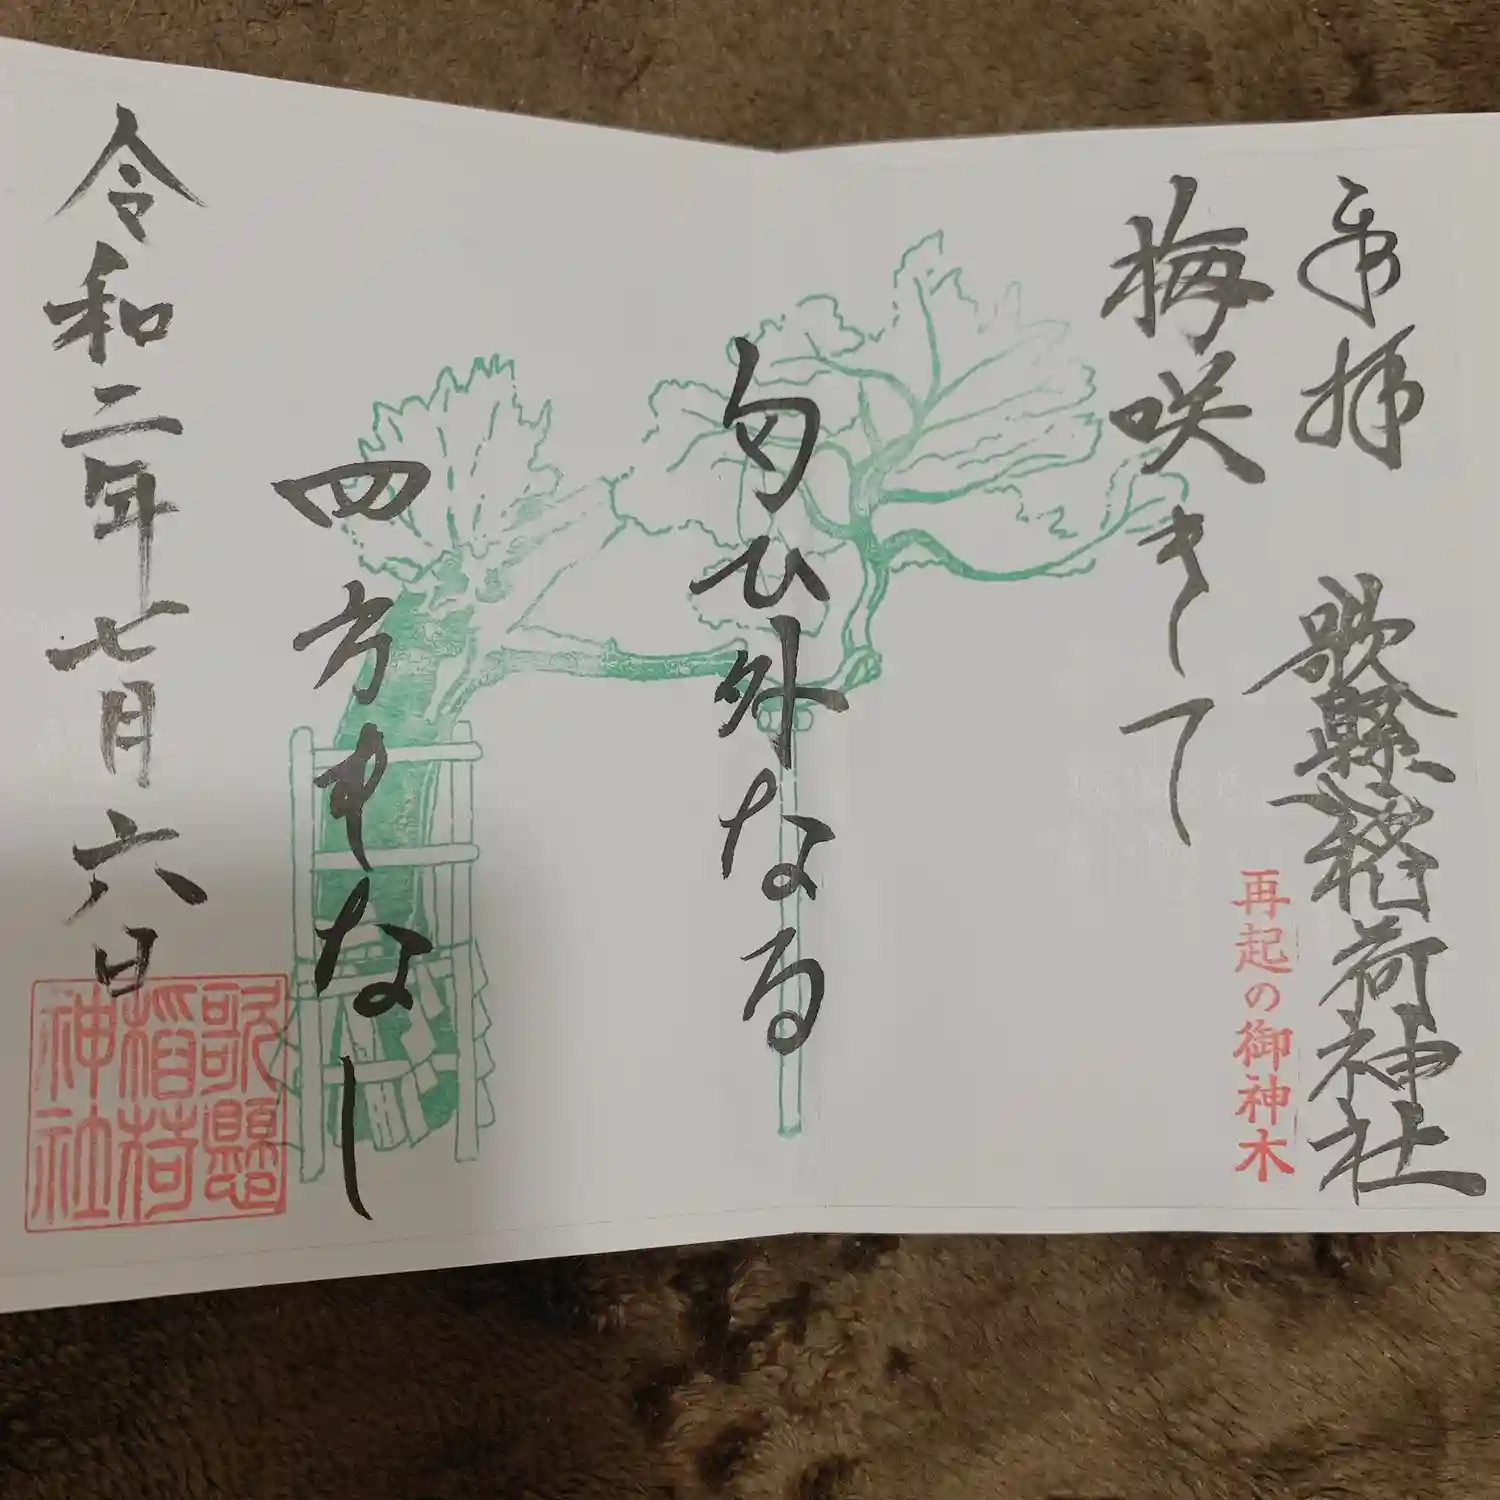 奉拝 歌縣稲荷神社
再起の御神木
梅咲きして
匂ひ外なる
四方もなし
令和二年七月六日
歌懸
稲荷
神社